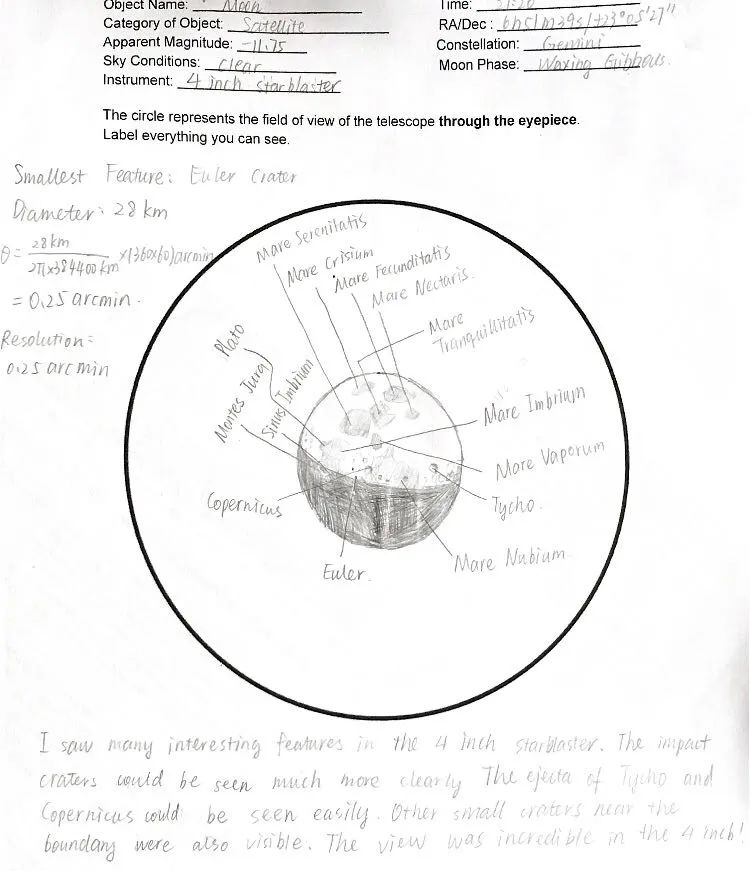 Object Name: Moon
Time: 21:20
Category of Object: Satellite
RA/Dec : 6h51m39s/+23°05'27"
Apparent Magnitude: -11.75
Constellation: Gemini
Sky Conditions: clear
Moon Phase: Waxing Gibbous.
Instrument: 4 inch starblaster
The circle represents the field of view of the telescope through the eyepiece.
Label everything you can see.
Smallest Feature: Euler Crater
Diameter: 28 km
θ = 28km / 2π×384400km ×(360×60) arcmin
= 0.25 arcmin.
Resolution:
0.25 arcmin
Mare Serenitatis
Mare Crisium
Mare Fecunditatis
Mare Nectaris.
Mare
Tranquillitatis
Plato
Montes Jura
Sinus Imbrium
Mare Imbrium
Mare Vaporum
Copernicus
Tycho.
Euler.
Mare Nubium.
I saw many interesting features in the 4 inch starblaster. The impact
craters could be seen much more clearly The ejecta of Tycho and
Copernicus could be seen easily. Other small craters near the
boundary were also visible. The view was incredible in the 4 inch!